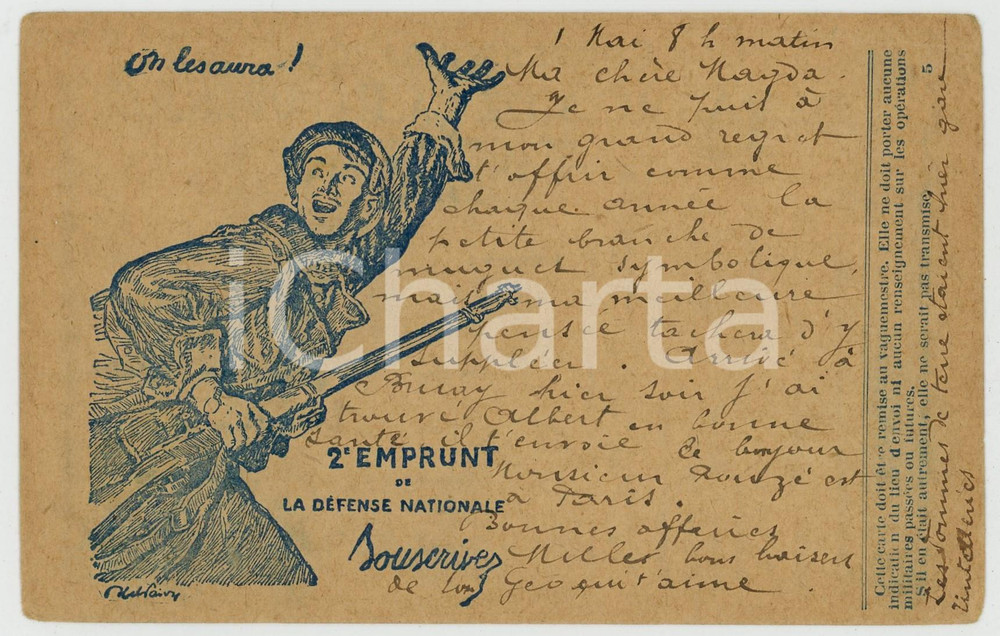 On les aura !
1 Mai 8 h matin
Ma chère Magda.
Je ne puis à
mon grand regret
t'offrir comme
chaque année la
petite branche de
muguet symbolique,
mais ma meilleure
pensée tachera d'y
suppléer. Arrivé à
Bruay hier soir j'ai
trouvé Albert en bonne
santé il t'envoie le bonjour
Monsieur Rouzé est
à Paris.
Bonnes affaires
Milles bons baisers
de ton Geo qui t'aime
2e EMPRUNT
DE
LA DÉFENSE NATIONALE
Souscrivez
iCharta
Cette carte doit être remise au vaguemestre. Elle ne doit porter aucune
indication du lieu d'envoi ni aucun renseignement sur les opérations
militaires passées ou futures.
S'il en était autrement, elle ne serait pas transmise.
5
Les pommes de terre étaient hier